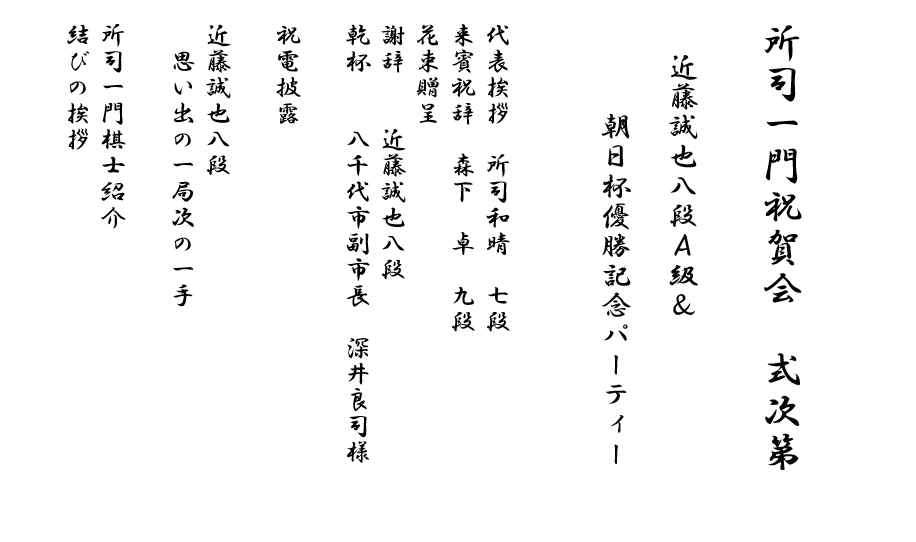 所司一門祝賀会　式次第
近藤誠也八段A級&
朝日杯優勝記念パーティー
代表挨拶　所司和晴　七段
来賓祝辞　森下　卓　九段
花束贈呈
謝辞　　近藤誠也八段
乾杯　　八千代市副市長　深井良司様
祝電披露
近藤誠也八段
思い出の一局次の一手
所司一門棋士紹介
結びの挨拶